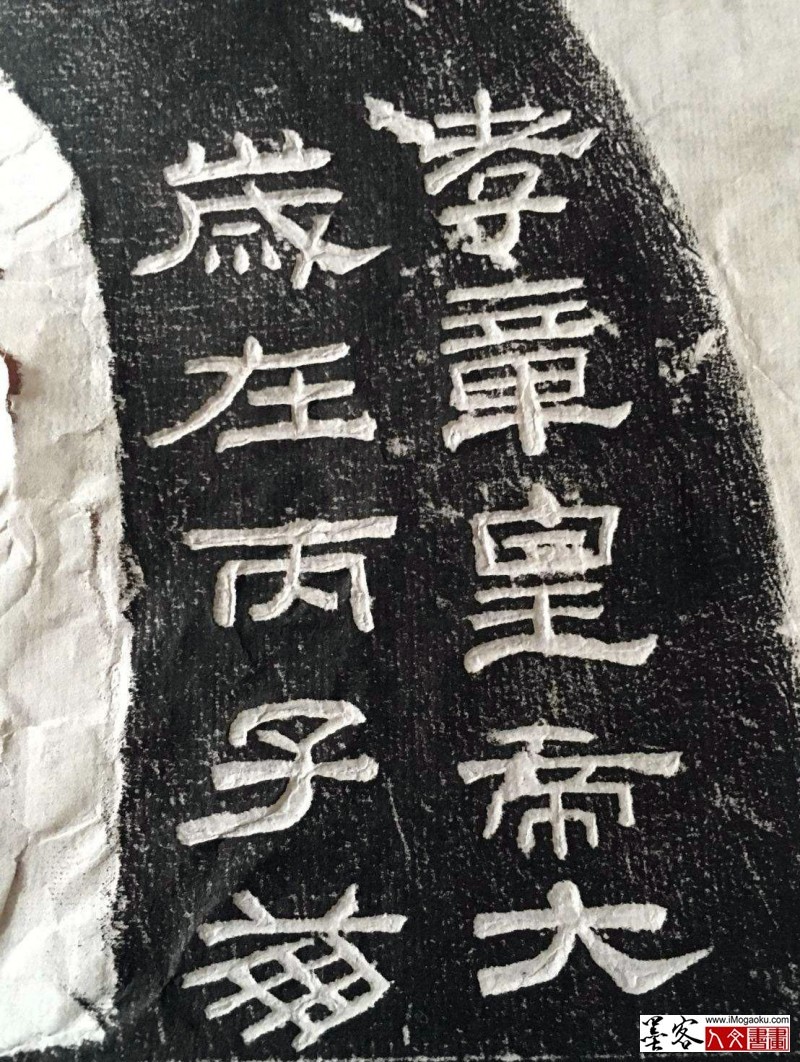 孝章皇帝大
歲在丙子
墨客
www.iMogaoku.com
人文書畫